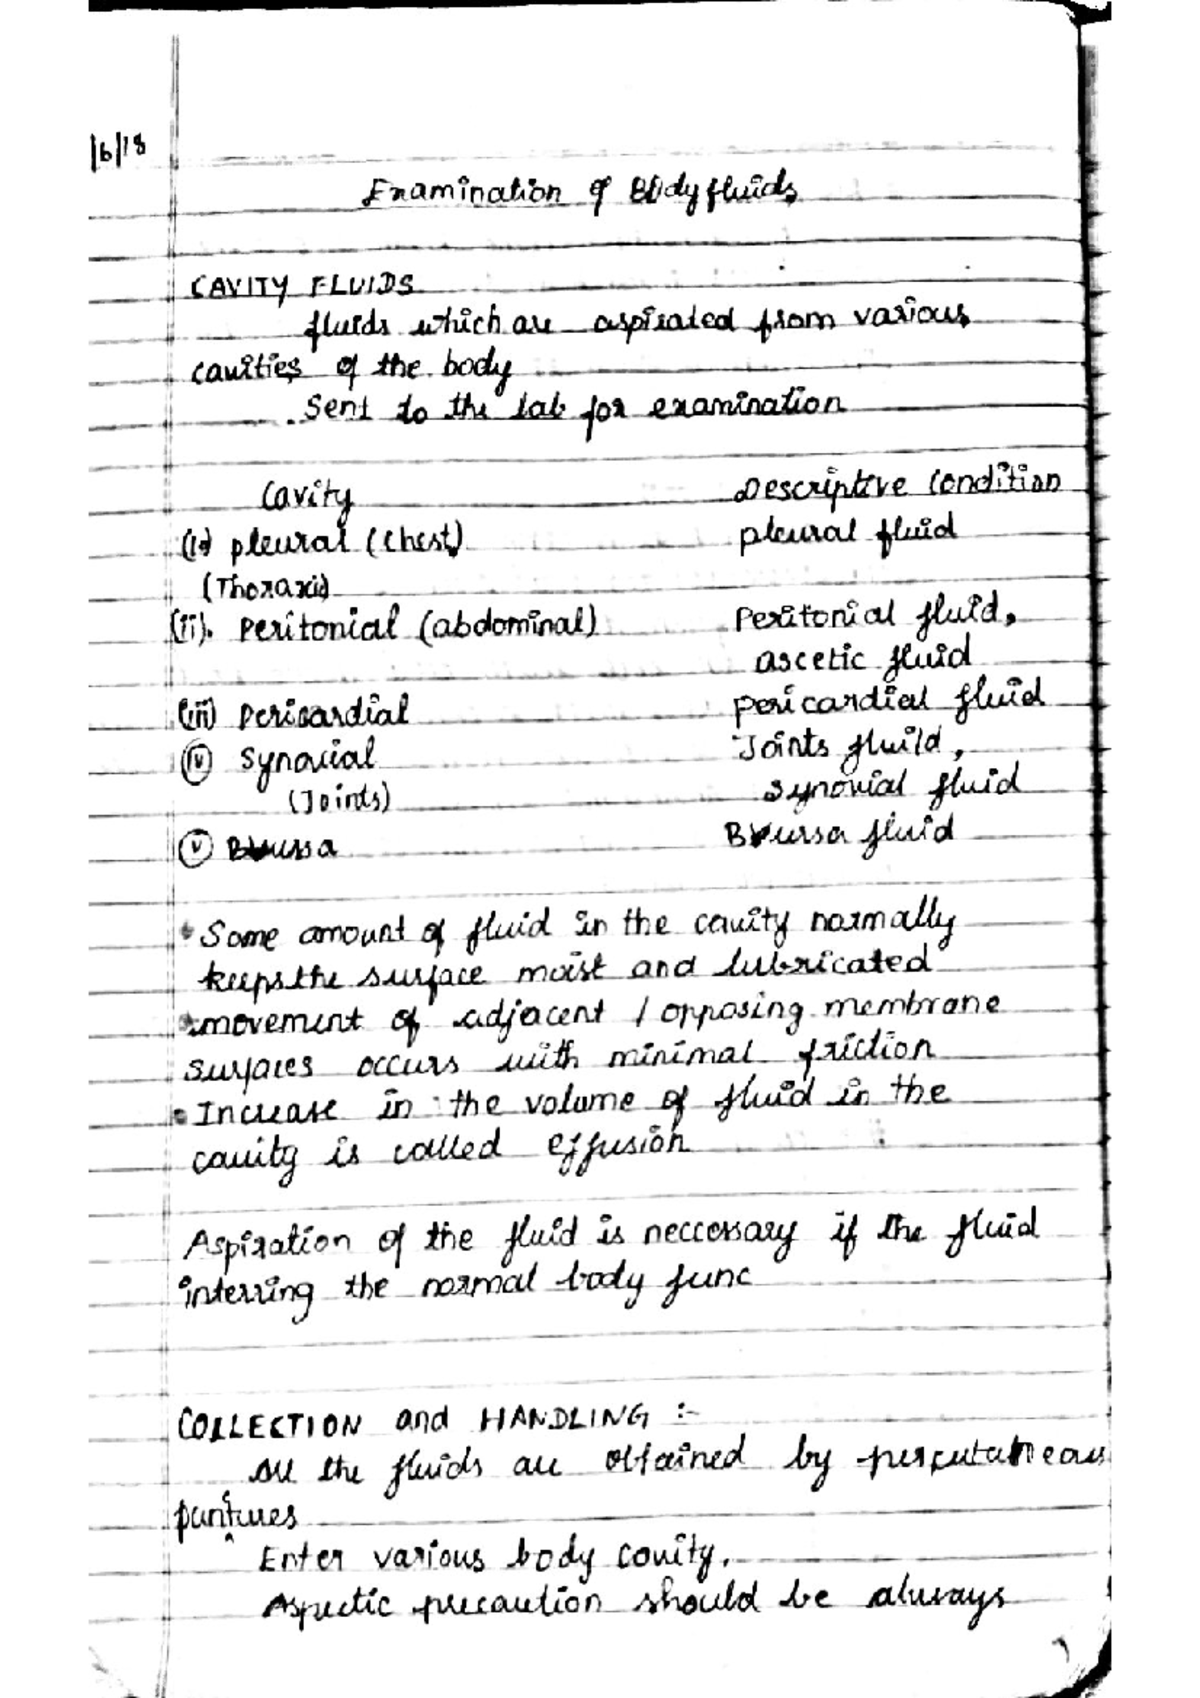 /6/18
Examination of Body fluids
CAVITY FLUIDS
fluids which are aspirated from various
cavities of the body
Sent to the lab for examination
Cavity Descriptive Condition
(i) pleural (Chest) pleural fluid
(Thoraxis)
(ii). Peritonial (abdominal) Peritonial fluid,
ascetic fluid
(iii) Pericardial pericardial fluid
(iv) Synovial Joints fluild,
(Joints) synovial fluid
(v) Bursa Bursa fluid
Some amount of fluid in the cavity normally
keeps the surface moist and lubricated
movement of adjacent / opposing membrane
surfaces occurs with minimal friction
Increase in the volume of fluid in the
cavity is called effusion
Aspiration of the fluid is neccessary if the fluid
interring the normal body func
COLLECTION and HANDLING :-
All the fluids are obtained by percutaneous
puntures
Enter various body cavity.
Aspectic precaution should be always